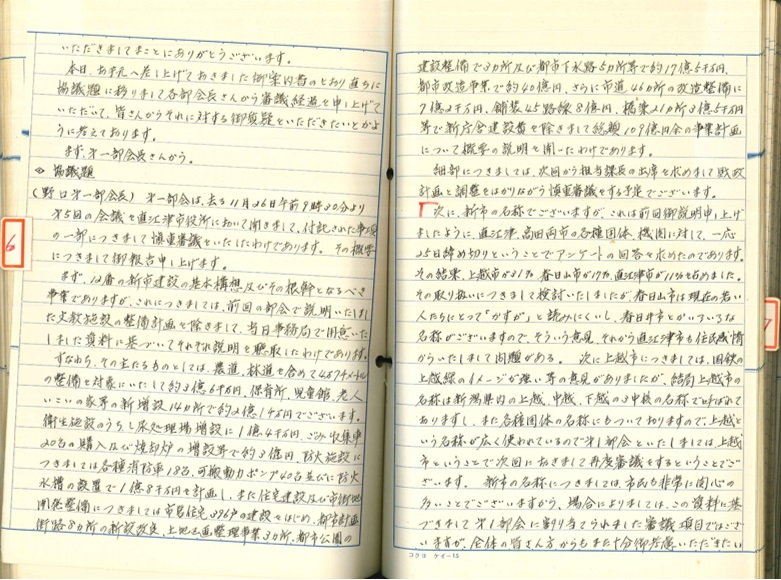 いただきましてまことにありがとうございます。
本日、お手元へ差し上げておきました御案内書のとおり直ちに
協議題に移りまして各部会長さんから審議経過を申し上げて
いただいて、皆さんからそれに対する御質疑をいただきたいとかよ
うに考えております。
まず、第一部会長さんから。
◇ 協議題
(野口第一部会長) 第一部会は、去る11月26日午前9時30分より
第5回の会議を直江津市役所において開きまして、付記された事項
の一部につきまして慎重審議をいたしたわけであります。その概要
につきまして御報告申し上げます。
まず、12番の新市建設の基本構想、及びその根幹となるべき
事業でありますが、これにつきましては、前回の部会で説明いたしまし
た文教施設の整備計画を除きまして、当日事務局で用意いた
しました資料に基づいてそれぞれ説明を聴取したわけであります。
すなわち、その主たるものとしては、農道、林道を含めて
の整備を対象にいたして約3億6千万円、保育所、児童館、老人
いこいの家等の新増設14カ所で約2億1千万円でございます。
衛生施設のうちし尿処理場増設に1億4千万円、ごみ収集車
20台の購入及び焼却炉の増設等で約3億円、防火施設に
つきましては各種消防車18台、可搬動力ポンプ40台並びに防火
水槽の設置で1億8千万円を計画し、また住宅建設及び市街地
開発整備につきましては市営住宅396戸の建設をはじめ、都市計画
街路8カ所の新設改良、土地区画整理事業3カ所、都市公園の
6
建設整備で3カ所及び都市下水路5カ所等で約17億5千万円、
都市改造事業で約40億円、さらに市道46カ所の改造整備に
9億2千万円、舗装45路線8億円、橋梁21カ所3億5千万円
等で新庁舎建設費を除きまして総額109億円余の事業計画
について概要の説明を聞いたわけであります。
細部につきましては、次回から担当課長の出席を求めまして財政
計画と調整をはかりながら慎重審議をする予定でございます。
次に、新市の名称でございますが、これは前回御説明申し上げ
ましたように、直江津、高田両市の各種団体、機関に対して、一応
25日締め切りということでアンケートの回答を求めたのであります。
その結果、上越市が31%、春日山市が17%、直江津市が11%を占めました。
その取り扱いにつきまして検討いたしましたが、春日山市は現在の若い
人たちにとって「かすが」と読みにくいし、春日井市とかいろいろな
名称がございますので、そういう意見、それから直江津市も住民感情
からいたしまして問題がある。次に上越市につきましては、国鉄の
上越線のイメージが強い等の意見がありましたが、結局上越市の
名称は新潟県内の上越、中越、下越の3中核の名称で呼ばれて
おりますし、また各種団体の名称にもついておりますので、上越と
いう名称が広く使われているので第1部会といたしましては、上越
市ということで次回におきまして再度審議をするということでご
ざいます。新市の名称につきましては、市民も非常に関心の
多いことでございますから、場合によりましては、この資料に基
づきまして第1部会に割り当てられました審議項目ではござ
いますが、全体の皆さん方からもまた十分御考慮いただきたい
コクヨ ケイ-15